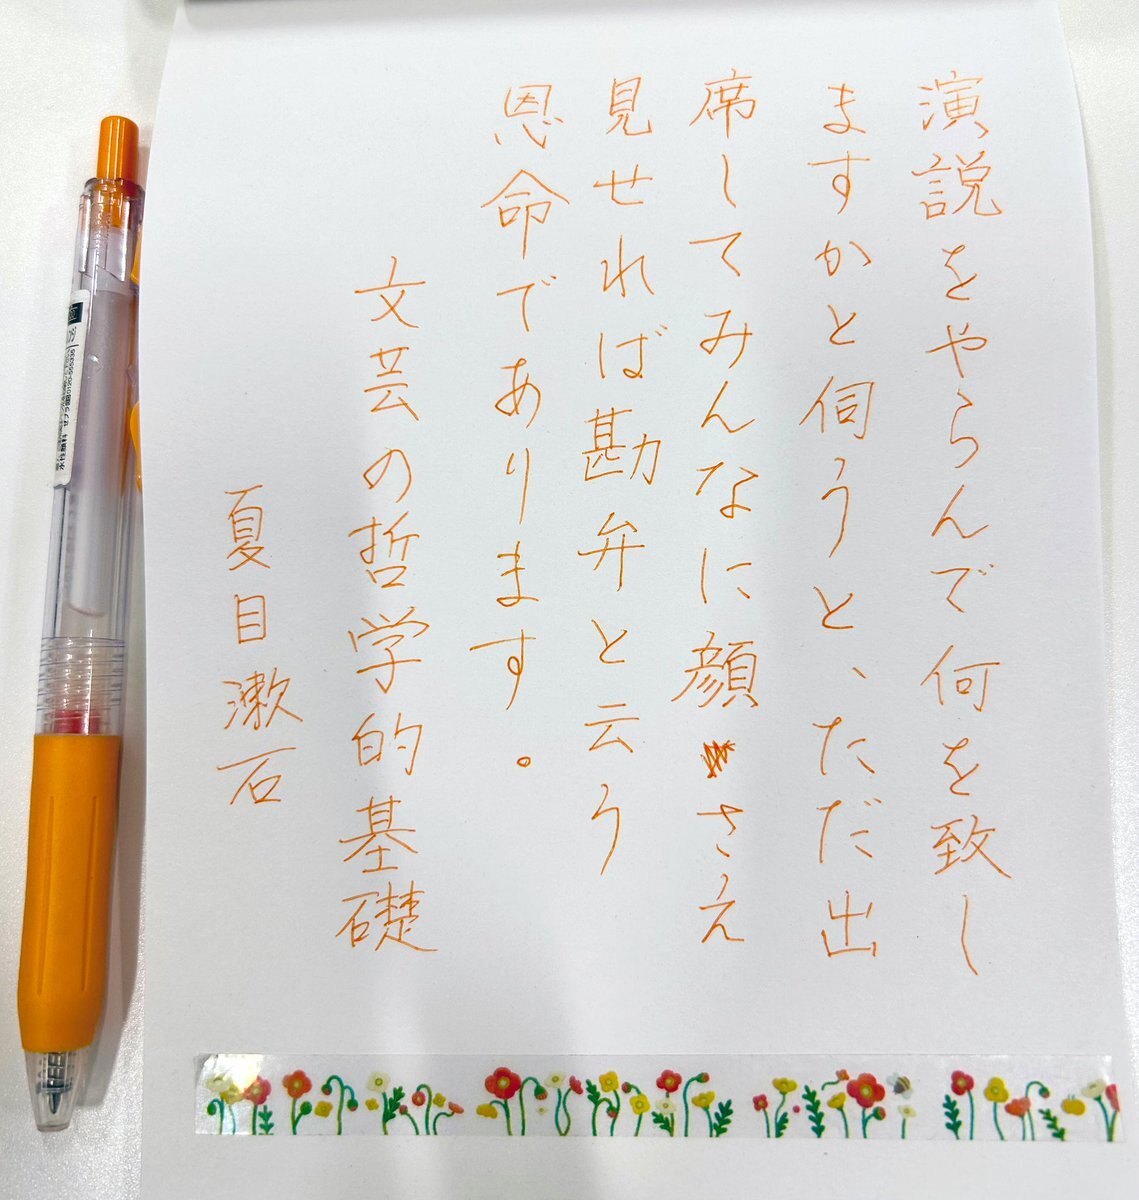 演説をやらんで何を致し
ますかと伺うと、ただ出
席してみんなに顔さえ
見せれば勘弁と云う
恩命であります。
文芸の哲学的基礎
夏目漱石